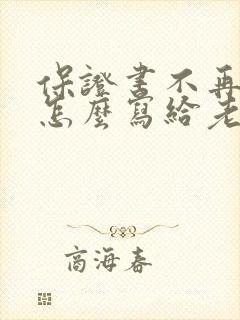 保證書不再
怎麼寫給老
商海春